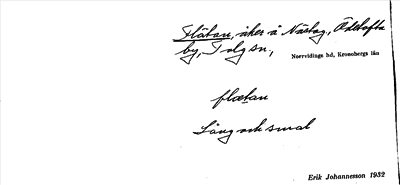 Flätan, åker å Näsbog., Ödetofta
by, Tolg sn,
Norrvidinge hd, Kronobergs län
flætan
Lång och smal
Erik Johannesson 1932